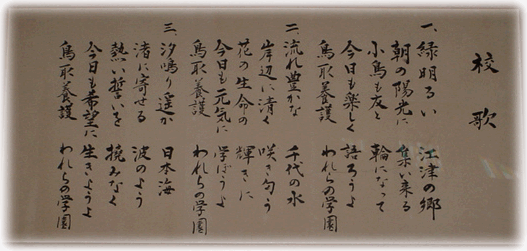 校歌
一、緑明るい 江津の郷
朝の陽光に 集い来る
小鳥も友と 輪になって
今日も楽しく 語ろうよ
鳥取養護 われらの学園
二、流れ豊かな 千代の水
岸辺に清く 咲き匂う
花の生命の 輝きに
今日も元気に 学ぼうよ
鳥取養護 われらの学園
三、汐鳴り遥か 日本海
渚に寄せる 波のよう
熱い誓いを 撓みなく
今日も希望に 生きようよ
鳥取養護 われらの学園